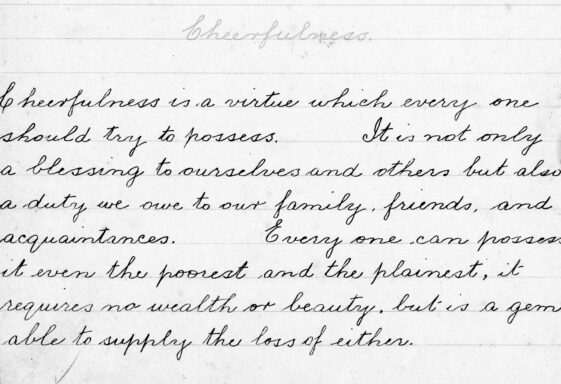 Cheerfulness.
Cheerfulness is a virtue which every one
should try to possess. It is not only
a blessing to ourselves and others but also
a duty we owe to our family, friends, and
acquaintances. Every one can possess
it even the poorest and the plainest, it
requires no wealth or beauty, but is a gem
able to supply the loss of either.